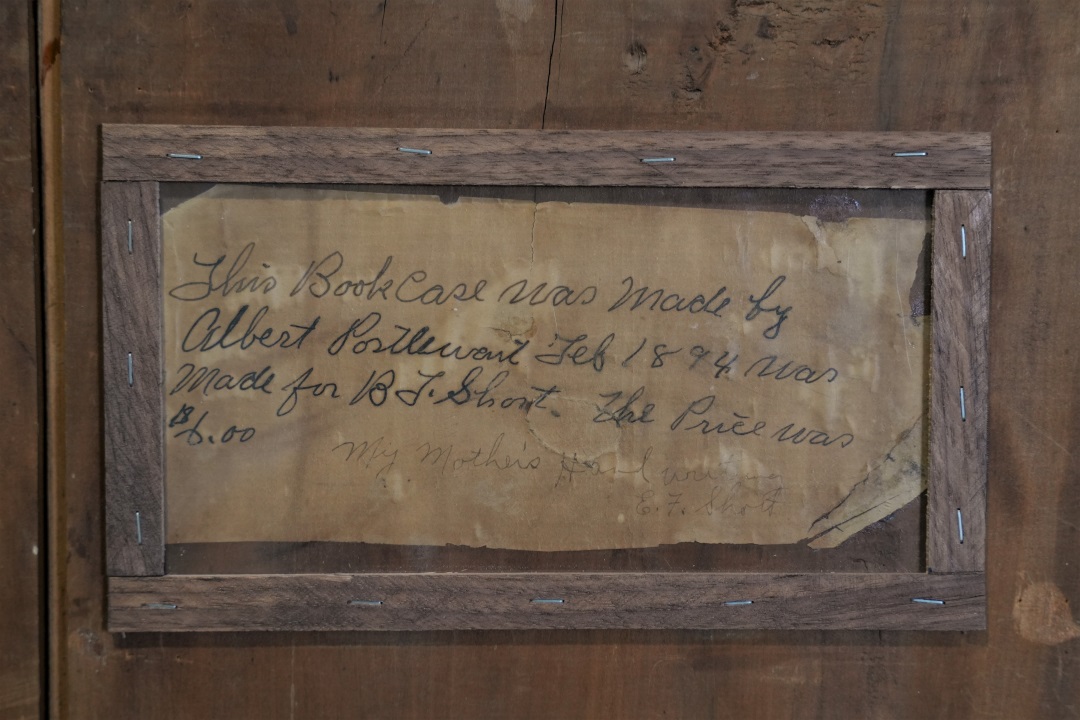 This Book Case was Made by
Albert Postlewait Feb 1894 was
Made for B.F. Short. The Price was
$6.00
My Mother's Hand writing
E.F. Short